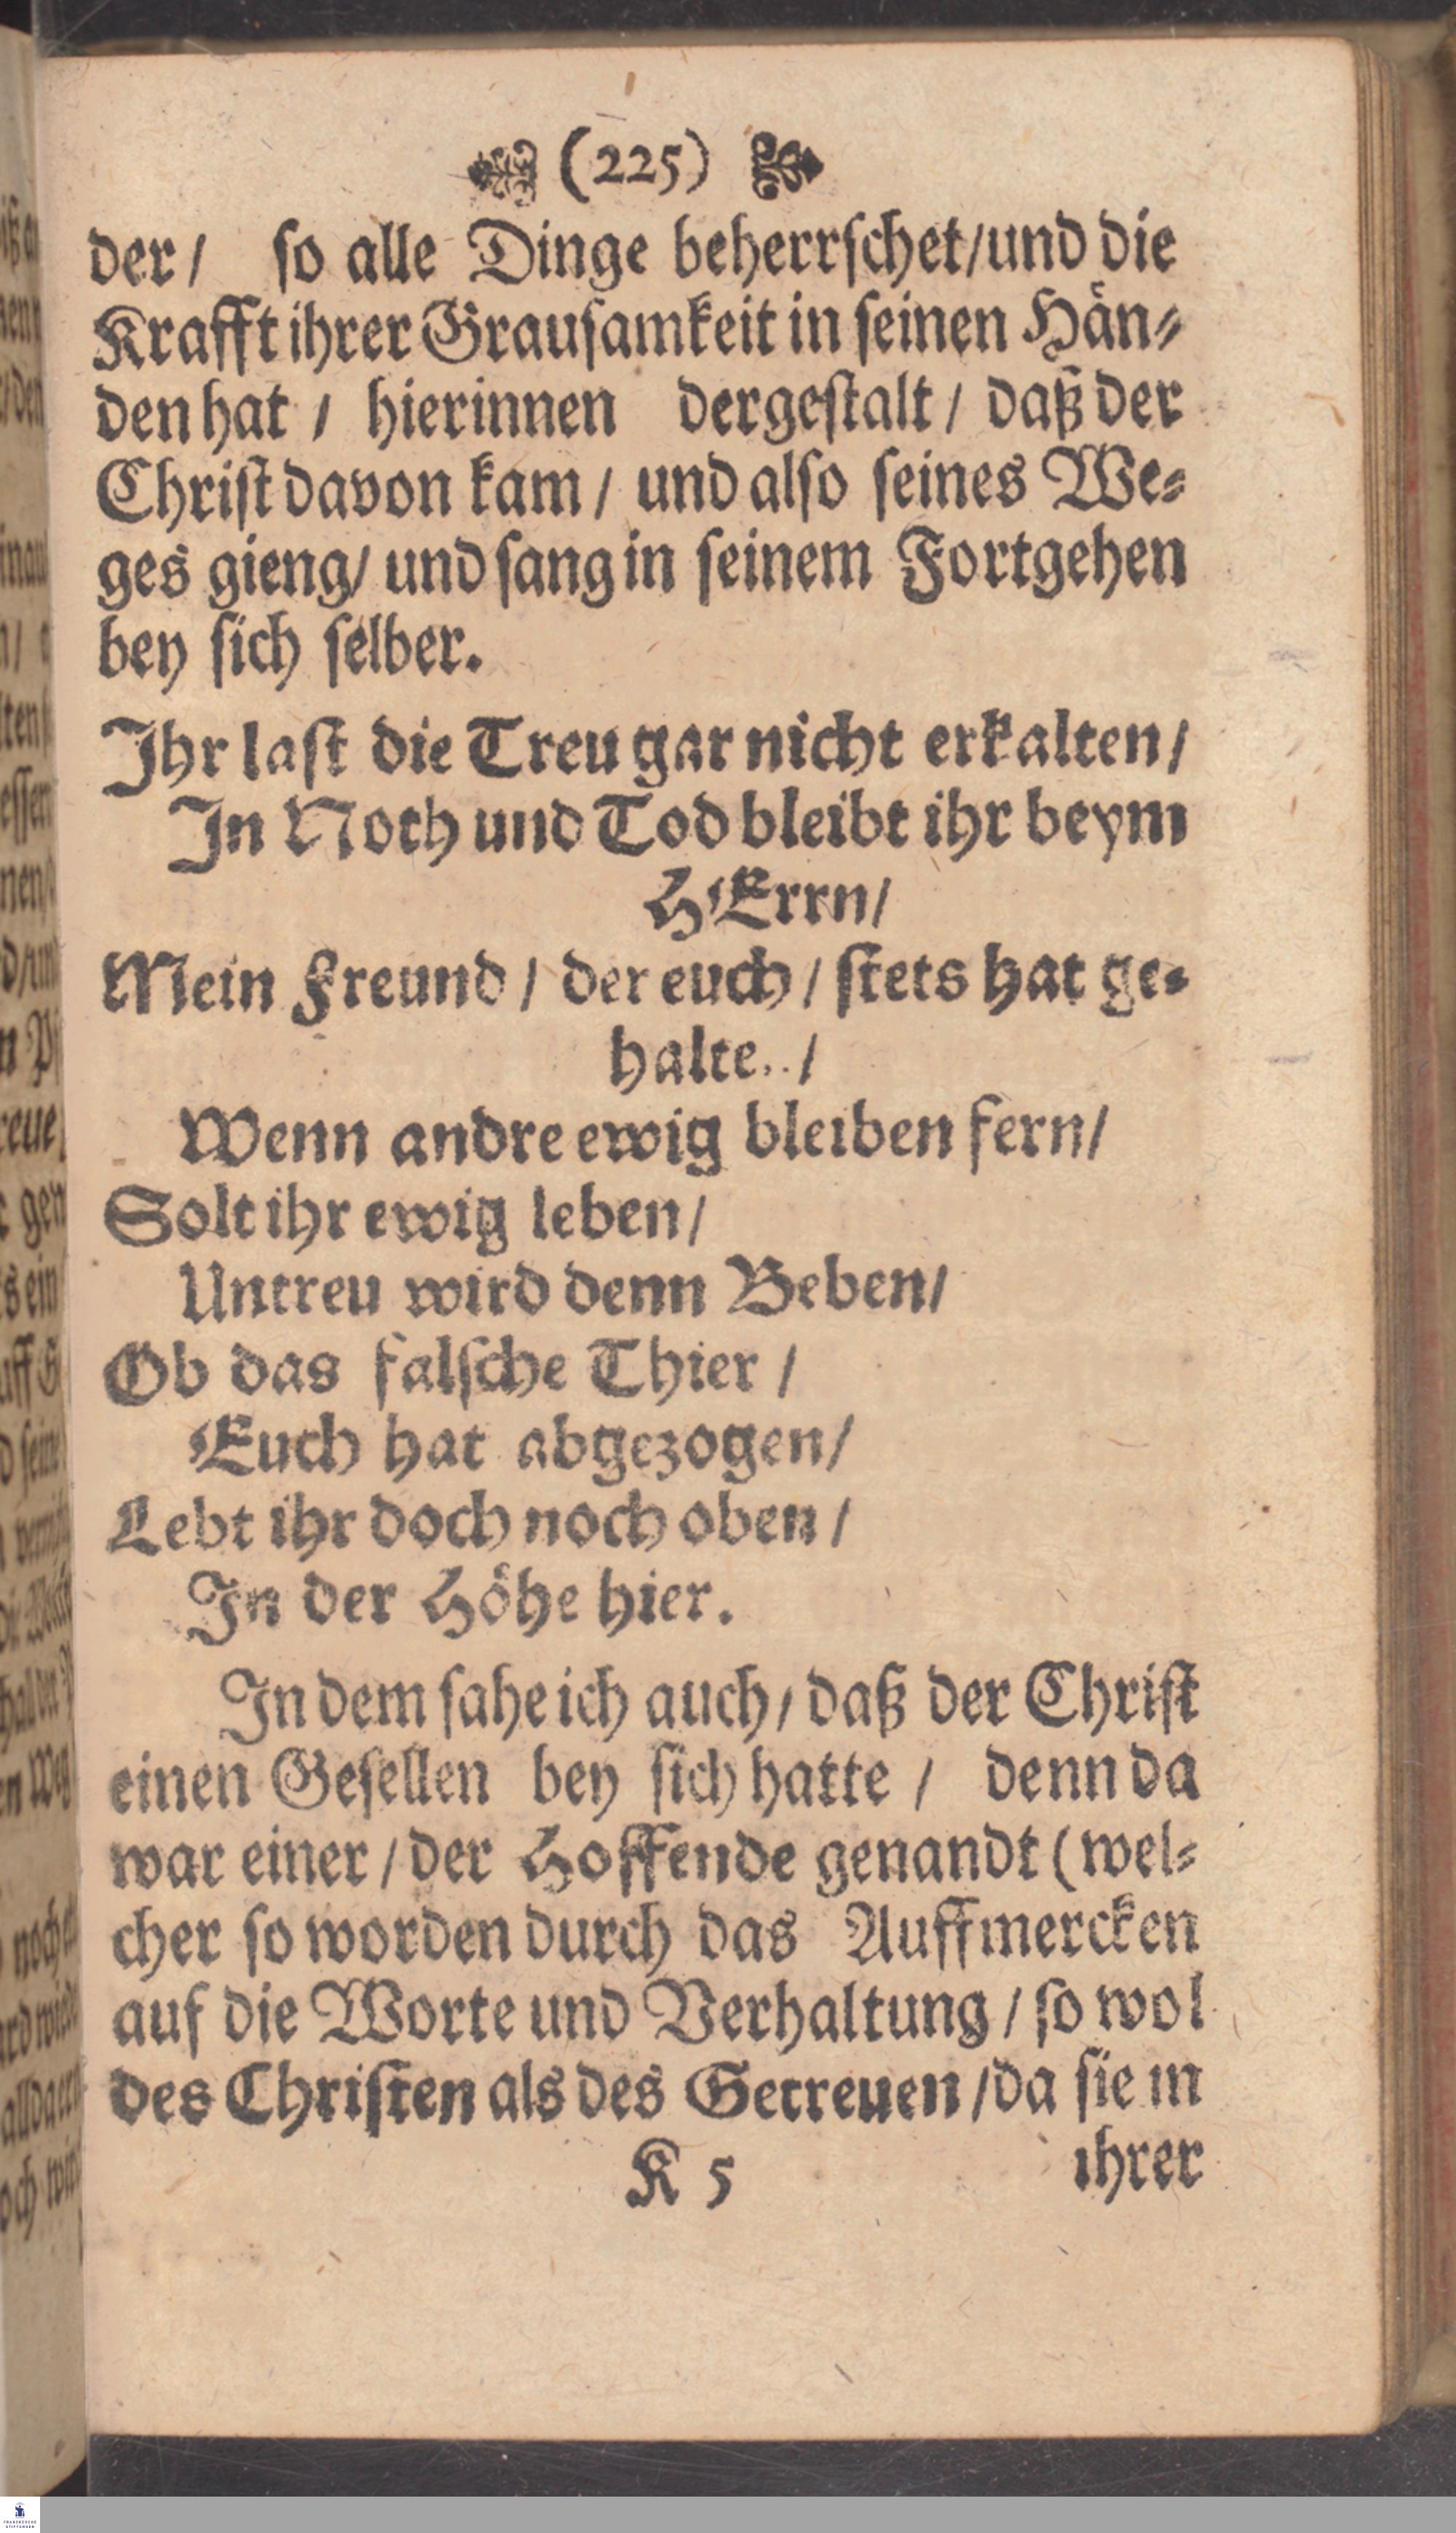 (225)
der/ ſo alle Dinge beherrſchet/und die
Krafft ihrer Grauſamkeit in ſeinen Hän⸗
den hat / hierinnen dergeſtalt / daß der
Chriſt davon kam / und alſo ſeines We⸗
ges gieng/ und ſang in ſeinem Fortgehen
bey ſich ſelber.
Ihr laſt die Treu gar nicht erkalten/
In Noth und Tod bleibt ihr beym
HErrn/
Mein Freund / der euch / ſtets hat ge⸗
halte.. /
Wenn andre ewig bleiben fern/
Solt ihr ewig leben/
Untreu wird denn Beben/
Ob das falſche Thier /
Euch hat abgezogen/
Lebt ihr doch noch oben /
In der Höhe hier.
In dem ſahe ich auch/ daß der Chriſt
einen Geſellen bey ſich hatte / denn da
war einer / der Hoffende genandt (wel⸗
cher ſo worden durch das Auffmercken
auf die Worte und Verhaltung / ſo wol
des Chriſten als des Getreuen /da ſie in
K 5 ihrer
FRANCKESCHE
STIFTUNGEN